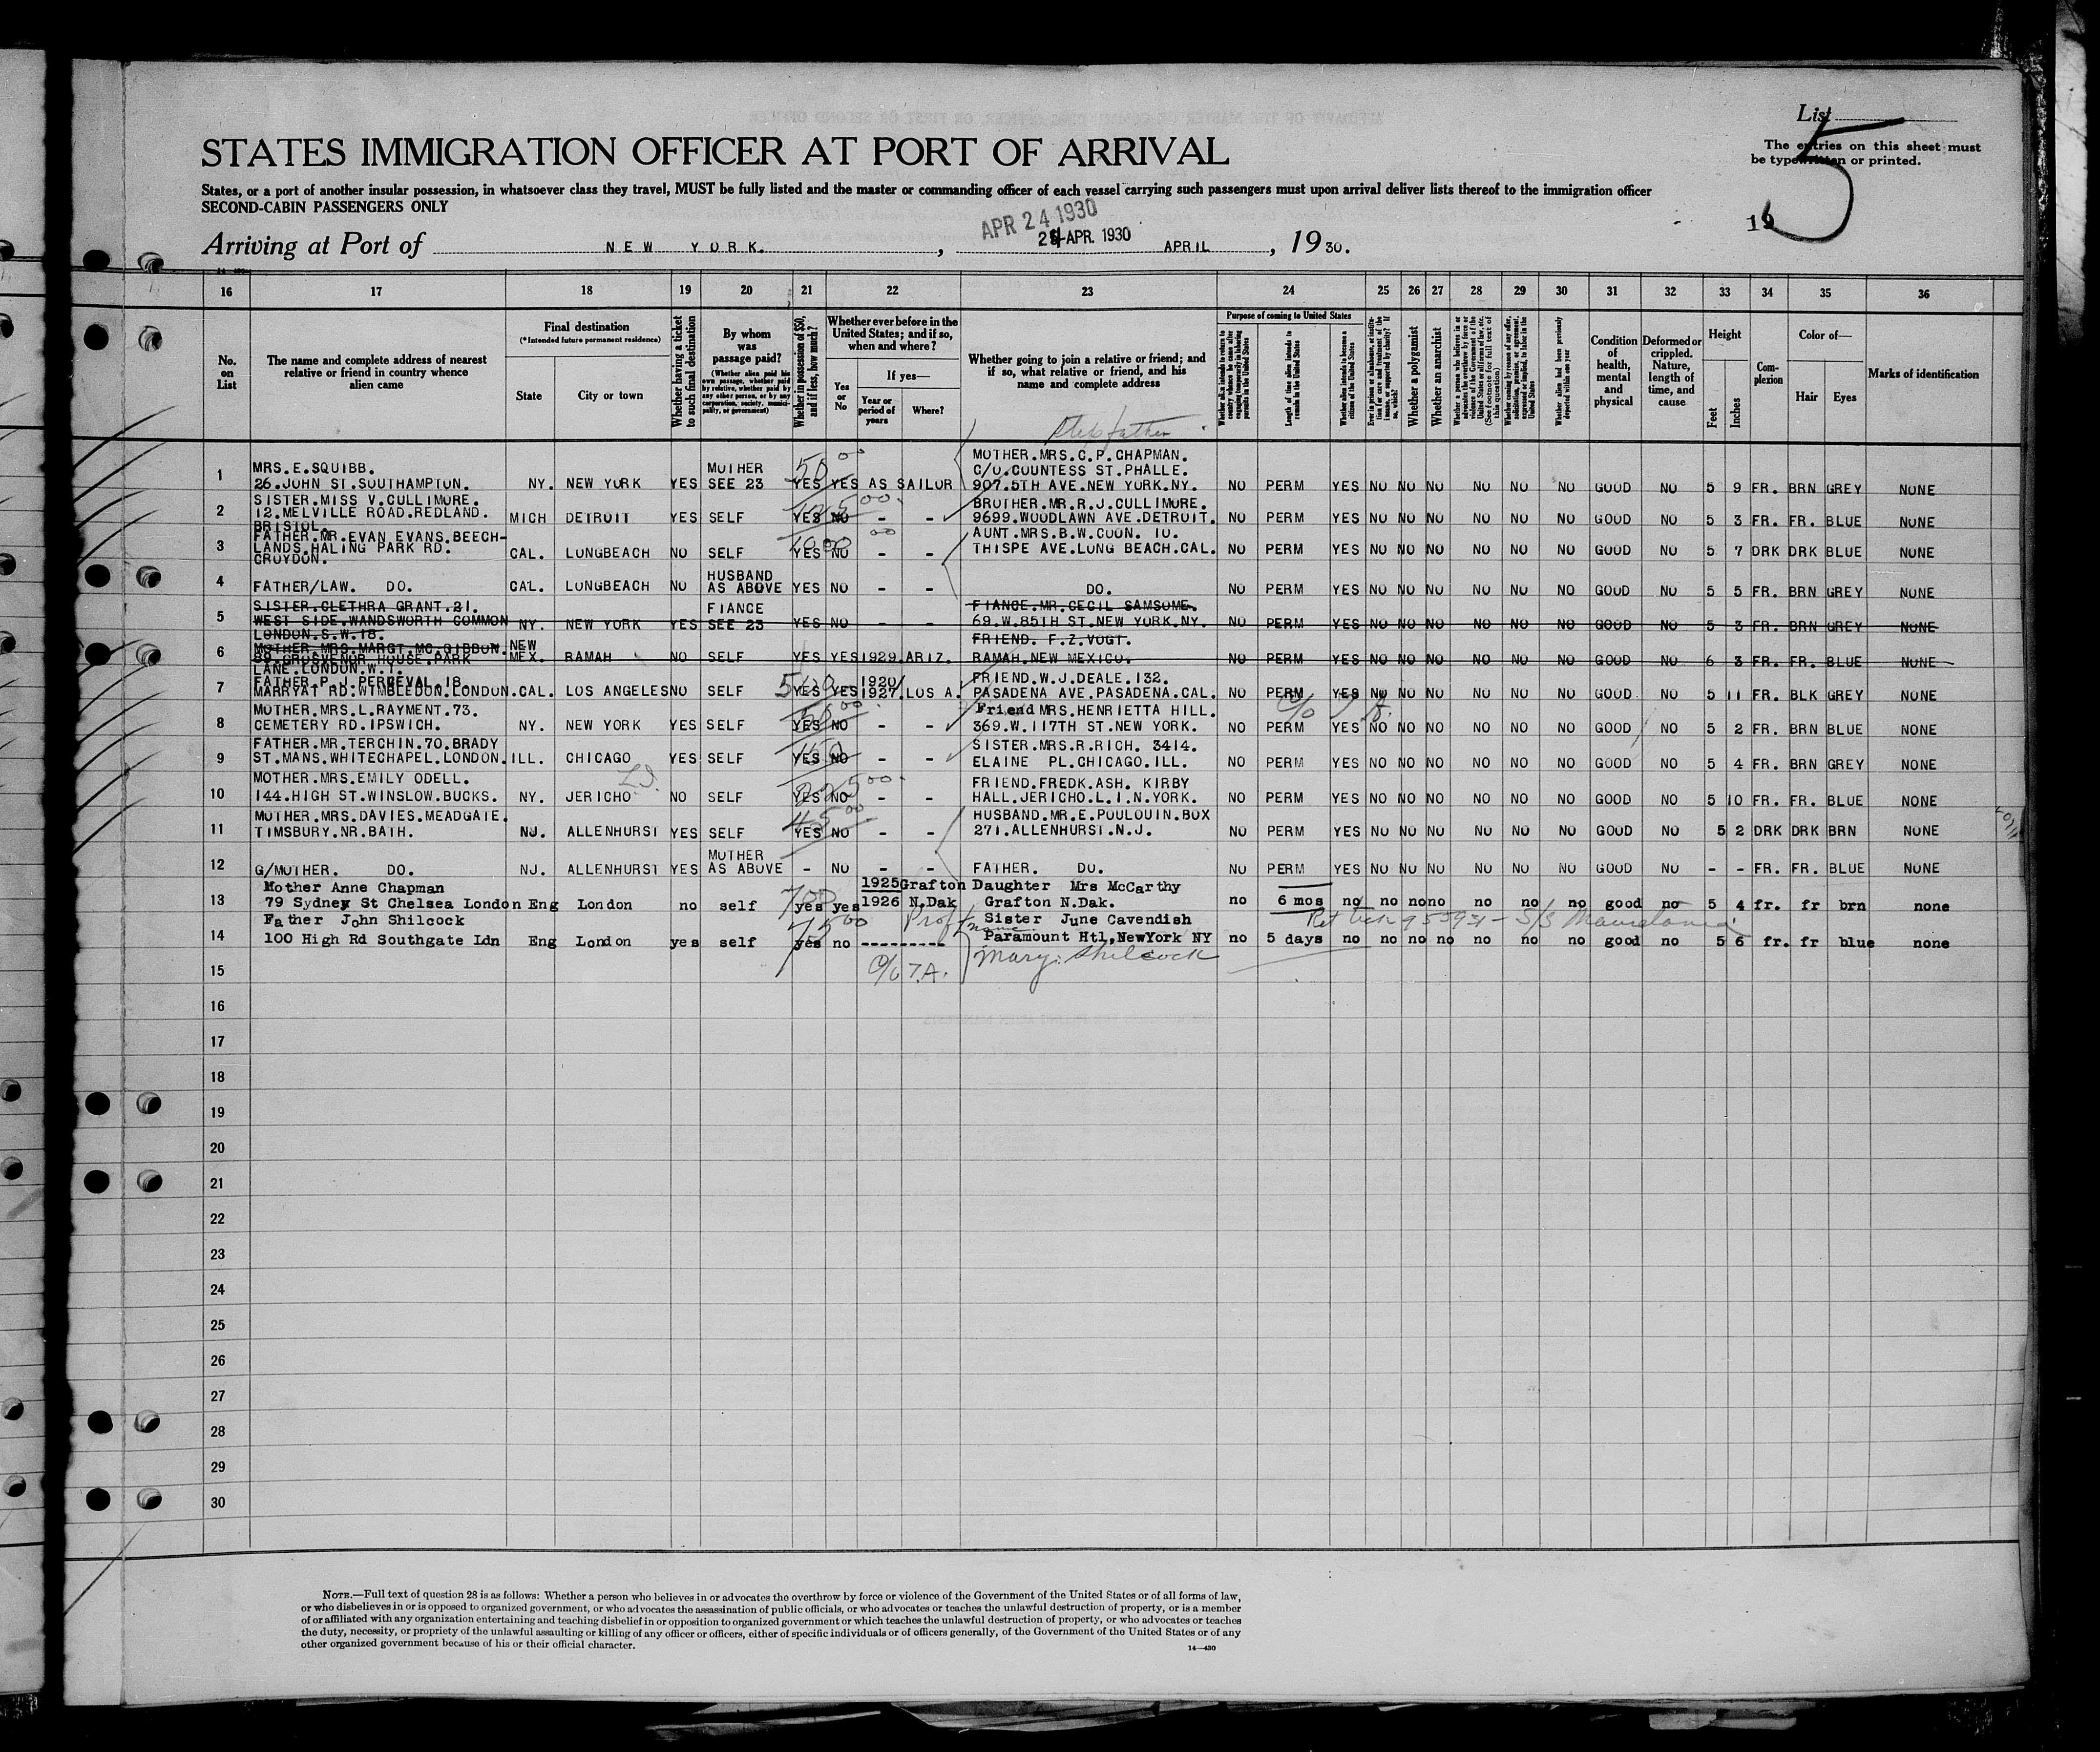 List
5
The entries on this sheet must
be typewritten or printed.
STATES IMMIGRATION OFFICER AT PORT OF ARRIVAL
States, or a port of another insular possession, in whatsoever class they travel, MUST be fully listed and the master or commanding officer of each vessel carrying such passengers must upon arrival deliver lists thereof to the immigration officer
SECOND-CABIN PASSENGERS ONLY
APR 24 1930
Arriving at Port of NEW YORK. , APR. 1930 APRIL , 1930.
16 17 18 19 20 21 22 23 24 25 26 27 28 29 30 31 32 33 34 35 36
No. on List
The name and complete address of nearest relative or friend in country whence alien came
Final destination
(*Intended future permanent residence)
State
City or town
Whether having a ticket to such final destination
By whom was passage paid?
(Whether alien paid his own passage, whether paid by relative, whether paid by any other person, or by any corporation, society, municipality, or government)
Whether in possession of $50, and if less, how much?
Whether ever before in the United States; and if so, when and where?
Yes or No
If yes—
Year or period of years
Where?
Whether going to join a relative or friend; and if so, what relative or friend, and his name and complete address
Purpose of coming to United States
Length of time alien intends to remain in the United States
Whether alien intends to become a citizen of the United States
Whether a polygamist
Whether an anarchist
Condition of health, mental and physical
Deformed or crippled. Nature, length of time, and cause
Height
Feet
Inches
Complexion
Color of—
Hair
Eyes
Marks of identification
Step father
1 MRS.E.SQUIBB. MOTHER 50 00 MOTHER.MRS.C.P.CHAPMAN.
C/O.COUNTESS ST.PHALLE.
26.JOHN ST.SOUTHAMPTON. NY. NEW YORK YES SEE 23 YES YES AS SAILOR 907.5TH AVE.NEW YORK.NY. NO PERM YES NO NO NO NO NO NO GOOD NO 5 9 FR. BRN GREY NONE
2 SISTER.MISS V.CULLIMORE. BROTHER.MR.R.J.CULLIMORE.
12.MELVILLE ROAD.REDLAND. MICH DETROIT YES SELF YES NO - - 9699.WOODLAWN AVE.DETROIT. NO PERM YES NO NO NO NO NO NO GOOD NO 5 3 FR. FR. BLUE NONE
BRISTOL.
3 FATHER.MR.EVAN EVANS.BEECH- AUNT.MRS.B.W.COON. 10.
LANDS.HALING PARK RD. CAL. LONGBEACH NO SELF YES NO - - THISPE AVE.LONG BEACH.CAL. NO PERM YES NO NO NO NO NO NO GOOD NO 5 7 DRK DRK BLUE NONE
CROYDON.
4 HUSBAND
FATHER/LAW. DO. CAL. LONGBEACH NO AS ABOVE YES NO - - DO. NO PERM YES NO NO NO NO NO NO GOOD NO 5 5 FR. BRN GREY NONE
5 SISTER.CLETHRA GRANT.21. FIANCE FIANCE.MR.CECIL SAMSOME.
WEST SIDE.WANDSWORTH COMMON NY. NEW YORK YES SEE 23 YES NO - - 69.W.85TH ST.NEW YORK.NY. NO PERM YES NO NO NO NO NO NO GOOD NO 5 3 FR. BRN GREY NONE
LONDON.S.W.18.
6 MOTHER.MRS.MARGT.MC.GIBBON. NEW FRIEND. F.Z.VOGT.
99.GROSVENOR HOUSE.PARK MEX. RAMAH NO SELF YES YES 1929.ARIZ. RAMAH.NEW MEXICO. NO PERM YES NO NO NO NO NO NO GOOD NO 6 3 FR. FR. BLUE NONE
LANE.LONDON.W.1.
7 FATHER.P.J.PERCEVAL.18. 1920/ FRIEND.W.J.DEALE.132.
MARRYAT RD.WIMBLEDON.LONDON. CAL. LOS ANGELES NO SELF YES YES 1927.LOS A. PASADENA AVE.PASADENA.CAL. NO PERM YES NO NO NO NO NO NO GOOD NO 5 11 FR. BLK GREY NONE
8 MOTHER.MRS.L.RAYMENT.73. Friend MRS.HENRIETTA HILL.
CEMETERY RD.IPSWICH. NY. NEW YORK YES SELF YES NO - - 369.W.117TH ST.NEW YORK. NO PERM YES NO NO NO NO NO NO GOOD NO 5 2 FR. BRN BLUE NONE
9 FATHER.MR.TERCHIN.70.BRADY SISTER.MRS.R.RICH. 3414.
ST.MANS.WHITECHAPEL.LONDON. ILL. CHICAGO YES SELF YES NO - - ELAINE PL.CHICAGO.ILL. NO PERM YES NO NO NO NO NO NO GOOD NO 5 4 FR. BRN GREY NONE
10 MOTHER.MRS.EMILY ODELL. FRIEND.FREDK.ASH. KIRBY
144.HIGH ST.WINSLOW.BUCKS. NY. JERICHO NO SELF YES NO - - HALL.JERICHO.L.I.N.YORK. NO PERM YES NO NO NO NO NO NO GOOD NO 5 10 FR. FR. BLUE NONE
11 MOTHER.MRS.DAVIES.MEADGATE. HUSBAND.MR.E.POULOUIN.BOX
TIMSBURY.NR.BATH. NJ. ALLENHURST YES SELF YES NO - - 271.ALLENHURST.N.J. NO PERM YES NO NO NO NO NO NO GOOD NO 5 2 DRK DRK BRN NONE
12 MOTHER
G/MOTHER. DO. NJ. ALLENHURST YES AS ABOVE - NO - - FATHER. DO. NO PERM YES NO NO NO NO NO NO GOOD NO - - FR. FR. BLUE NONE
13 Mother Anne Chapman 1925 Grafton Daughter Mrs McCarthy
79 Sydney St Chelsea London Eng London no self yes yes 1926 N.Dak Grafton N.Dak. no 6 mos no no no no no no no good no 5 4 fr. fr brn none
14 Father John Shilcock Sister June Cavendish
100 High Rd Southgate Ldn Eng London yes self yes no --------- Paramount Htl,NewYork NY no 5 days no no no no no no no good no 5 6 fr. fr blue none
15 Mary Shilcock
16
17
18
19
20
21
22
23
24
25
26
27
28
29
30
NOTE.—Full text of question 28 is as follows: Whether a person who believes in or advocates the overthrow by force or violence of the Government of the United States or of all forms of law,
or who disbelieves in or is opposed to organized government, or who advocates the assassination of public officials, or who advocates or teaches the unlawful destruction of property, or is a member
of or affiliated with any organization entertaining and teaching disbelief in or opposition to organized government or which teaches the unlawful destruction of property, or who advocates or teaches
the duty, necessity, or propriety of the unlawful assaulting or killing of any officer or officers, either of specific individuals or of officers generally, of the Government of the United States or of any
other organized government because of his or their official character.
14—430